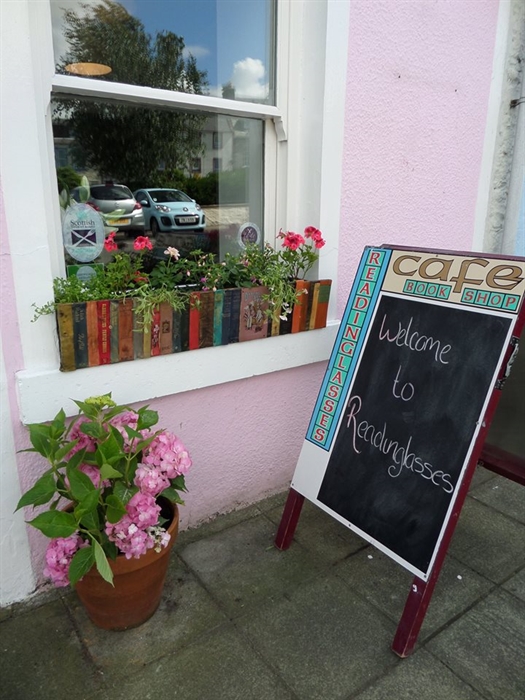 cafe
BOOK SHOP
READINGLASSES
Welcome
to
Readinglasses
Scottish